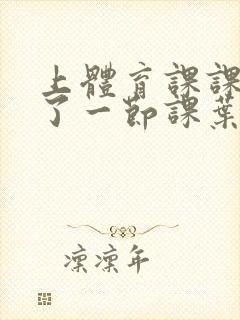 上體育課課
了一節課葉
凛凛年